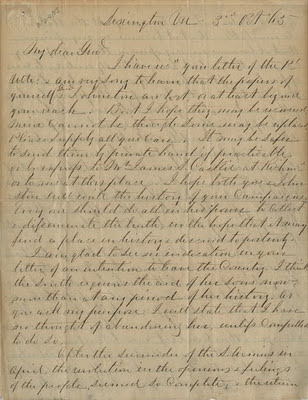 Lexington Va - 3rd Oct '65
My dear Genl
I have recd your letter of the 1st
& am very sorry to learn that the papers of
yourself & Johnston are lost or at least beyond
your reach. I hope they may be recovered
cannot be though some may be
supply all you can. It may be safer
to send them by private hand if practicable
or by express to Mr James
or to me at this place. I hope both you & John
ston will write the history of your campaigns
Every one should do all in his power to collect
& disseminate the truth, in the hope that it may
find a place in history & descend to posterity.
I am glad to see no indication in your
letter of an intention to leave the Country. I think
the South requires the aid of her sons now
more than at any period of her history. As
you ask my purpose I will state that I have
no thought of abandoning her unless compelled
to do so.
After the surrender of the S. Armies in
April the revolution in the opinions & feelings
of the people seemed so complete & the return